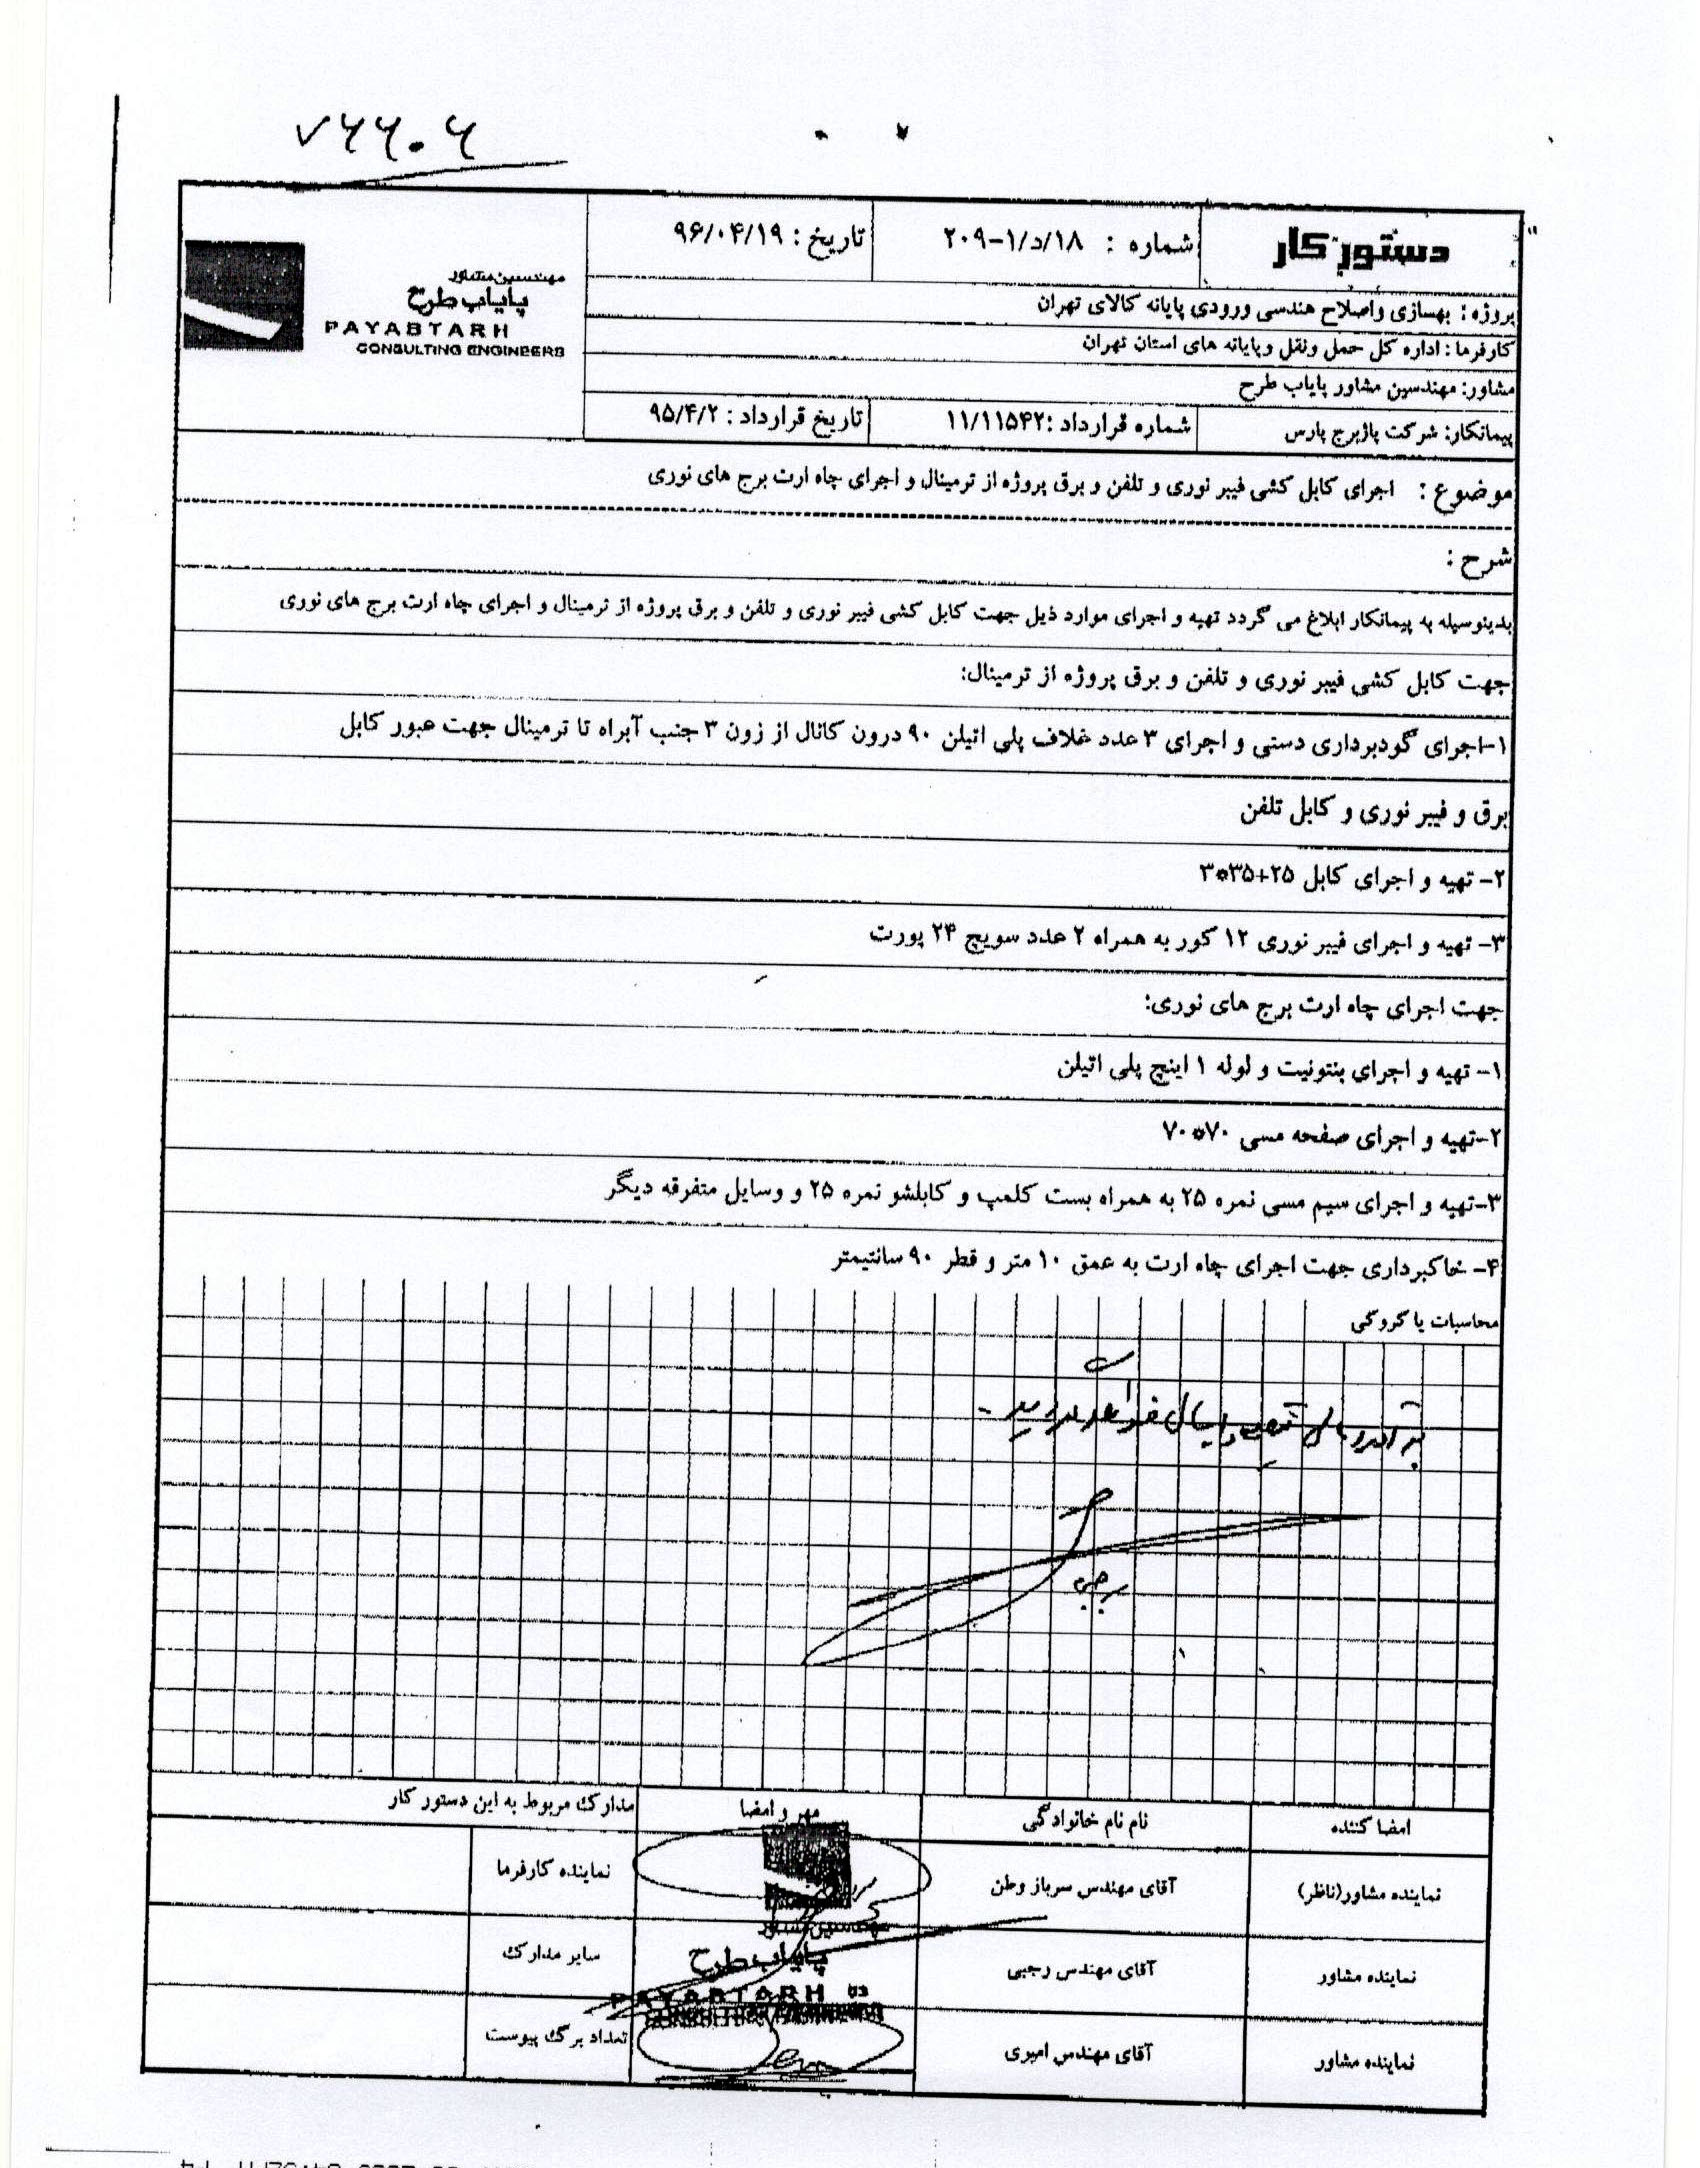 ۷۶۶۰۶
دستور کار
شماره : ۲۰۹-۱/د/۱۸
تاریخ : ۹۶/۰۴/۱۹
مهندسین مشاور
پایاب طرح
PAYABTARH
CONSULTING ENGINEERS
پروژه : بهسازی واصلاح هندسی ورودی پایانه کالای تهران
کارفرما : اداره کل حمل ونقل وپایانه های استان تهران
مشاور: مهندسین مشاور پایاب طرح
پیمانکار: شرکت پاژبرج پارس
شماره قرارداد :۱۱/۱۱۵۴۲
تاریخ قرارداد : ۹۵/۴/۲
موضوع : اجرای کابل کشی فیبر نوری و تلفن و برق پروژه از ترمینال و اجرای چاه ارت برج های نوری
شرح :
بدینوسیله به پیمانکار ابلاغ می گردد تهیه و اجرای موارد ذیل جهت کابل کشی فیبر نوری و تلفن و برق پروژه از ترمینال و اجرای چاه ارت برج های نوری
جهت کابل کشی فیبر نوری و تلفن و برق پروژه از ترمینال:
۱-اجرای گودبرداری دستی و اجرای ۳ عدد غلاف پلی اتیلن ۹۰ درون کانال از زون ۳ جنب آبراه تا ترمینال جهت عبور کابل
برق و فیبر نوری و کابل تلفن
۲- تهیه و اجرای کابل ۲۵+۳۵*۳
۳- تهیه و اجرای فیبر نوری ۱۲ کور به همراه ۲ عدد سویچ ۲۴ پورت
جهت اجرای چاه ارت برج های نوری:
۱- تهیه و اجرای بنتونیت و لوله ۱ اینچ پلی اتیلن
۲-تهیه و اجرای صفحه مسی ۷۰*۷۰
۳-تهیه و اجرای سیم مسی نمره ۲۵ به همراه بست کلمپ و کابلشو نمره ۲۵ و وسایل متفرقه دیگر
۴- خاکبرداری جهت اجرای چاه ارت به عمق ۱۰ متر و قطر ۹۰ سانتیمتر
محاسبات یا کروکی
رجبی
امضا کننده
نام نام خانوادگی
مهر و امضا
مدارک مربوط به این دستور کار
نماینده مشاور(ناظر)
آقای مهندس سرباز وطن
نماینده کارفرما
نماینده مشاور
آقای مهندس رجبی
سایر مدارک
نماینده مشاور
آقای مهندس امیری
تعداد برگ پیوست
مهندسین مشاور
پایاب طرح
PAYABTARH